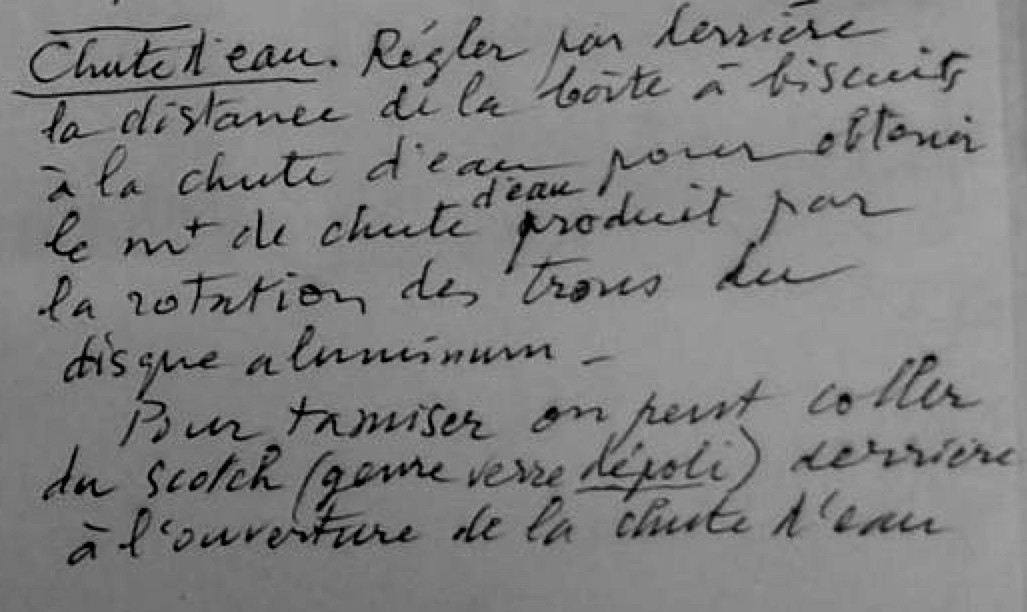 Chute d'eau. Régler par derrière
la distance de la boîte à biscuits
à la chute d'eau pour obtenir
le mt de chute d'eau produit par
la rotation des trous du
disque aluminum -
Pour tamiser on peut coller
du scotch (genre verre dépoli) derrière
à l'ouverture de la chute d'eau